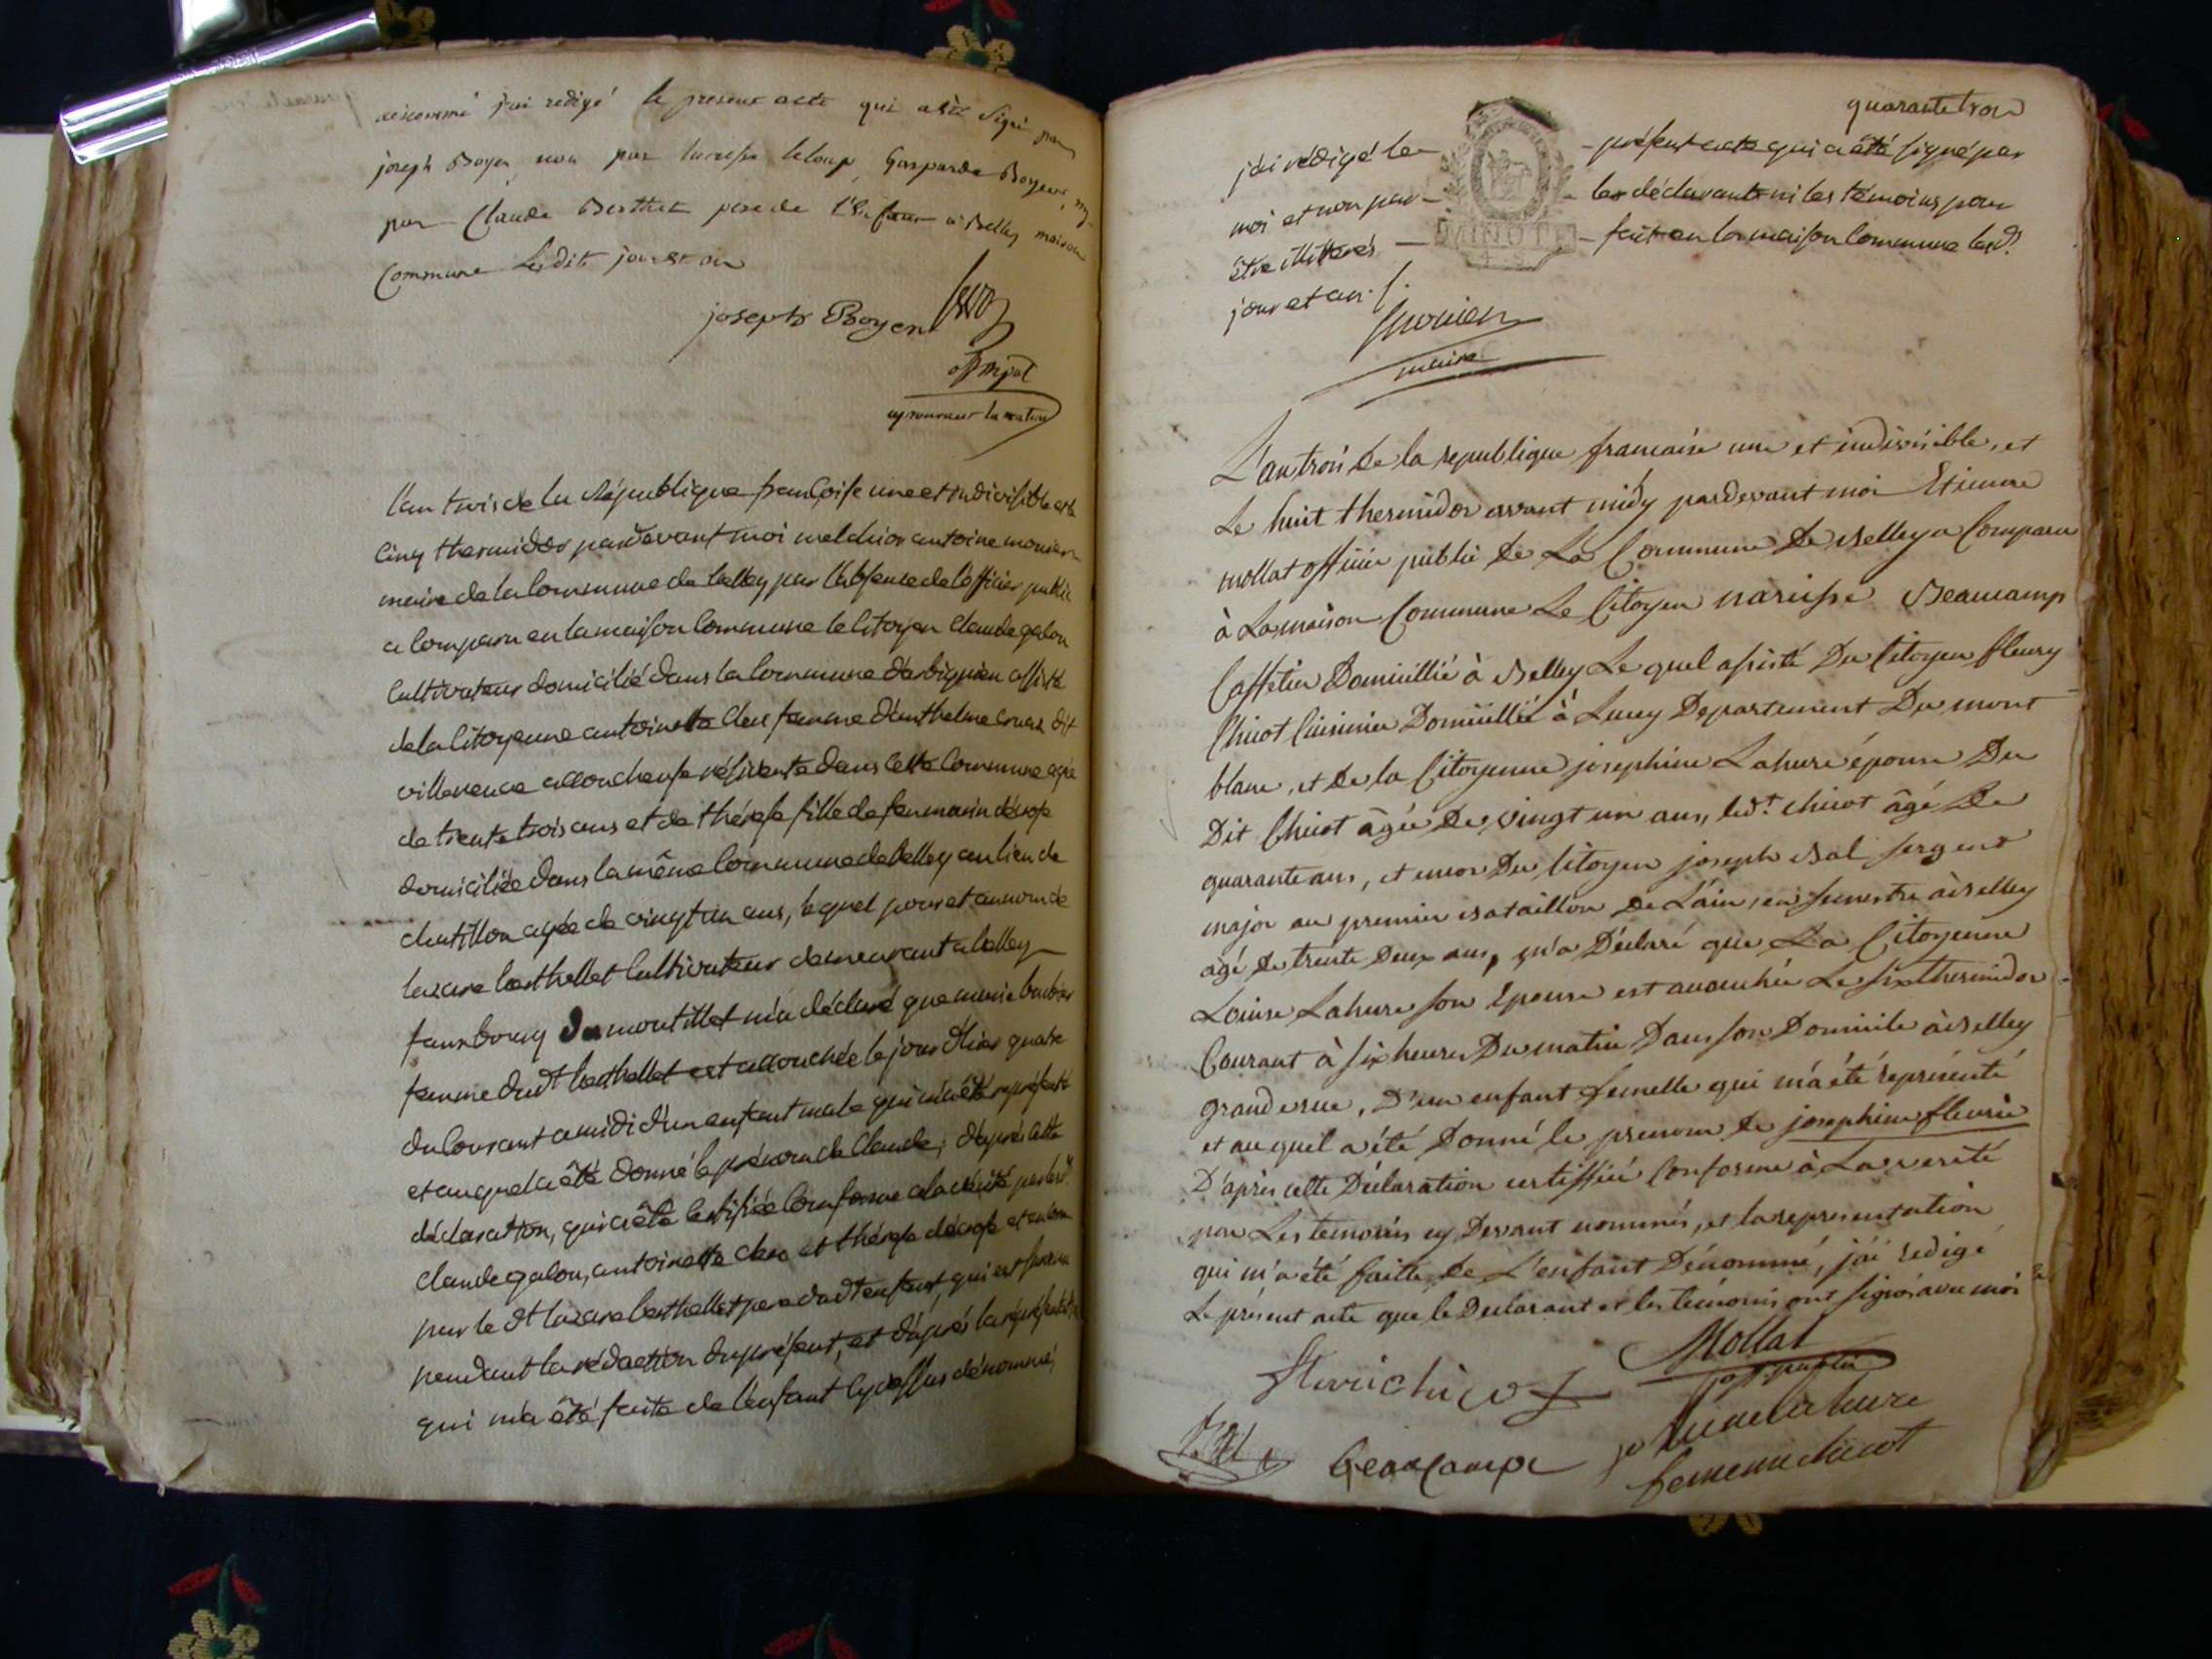 dénommé j'ai redigé le present acte qui a été signé par
joseph Boyer, non par lucresse leloup, Gasparde Boyer, ny
par Claude Berthet pere de l'Enfant a Belley maison
Commune Lesdits jour et an
joseph Boyer
off mpal
aprouvant la rature
l'an trois de la République françoise une et indivisible et le
cinq thermidor pardevant moi melchior antoine monier
maire de la Commune de belley par l'absence de l'officier public
a Comparu en la maison Commune le Citoyen Claude galon
Cultivateur domicilié dans la Commune d'arbignieu assisté
de la Citoyenne antoinette clerc femme d'anthelme dit
villeneuve accoucheuse résidente dans cette Commune agée
de trente trois ans et de thérése fille de feu marin
domiciliée dans la même Commune de Belley au lieu de
chatillon agée de vingt un ans, lequel pour et au nom de
lazare berthellet Cultivateur demeurant a belley
fauxbourg du montillet m'a déclaré que marie
femme dudt berthellet est accouchée le jour d'hier quatre
du Courant a midi d'un enfant male qui m'a été représenté
et auquel a été donné le prénom de Claude; d'après cette
déclaration, qui a été certifiée Conforme a la vérité par led.
Claude galon, antoinette clerc et thérése et encore
par le dt lazare berthellet pere dudt enfant, qui est survenu
pendant la rédaction du présent, et d'après la représentation
qui m'a été faite de l'enfant cydessus dénommé,
quarante trois
j'ai rédigé le - présent acte qui a été signé par
moi et non par - les déclarants ni les témoins pour
MINUTE
être illitterés - fait en la maison Commune lesd.
jour et an ./.
monier
maire
L'an trois de la republique francaise une et indivisible, et
Le huit thermidor avant midy pardevant moi Etienne
mollat officier public de La Commune de Belley a Comparu
à La maison Commune Le Citoyen narcisse Beaucamp
Caffetier Domicillié à Belley Le quel assisté Du Citoyen fleury
Chicot Cuisinier Domicillié à Lucey Departement Du mont
blanc, et de la Citoyenne josephine Lahure épouse Du
Dit Chicot âgée De vingt un ans, led.t chicot âgé de
quarante ans, et encor Du Citoyen joseph Bal sergent
major au premier Bataillon de L'ain, en semestre à Belley
agé de trente Deux ans, m'a Déclaré que La Citoyenne
Louise Lahure son Epouse est accouchée Le six thermidor
Courant à six heures Du matin Dans son Domicile à Belley
grande rue, D'un enfant femelle qui m'a été représenté
et au quel a été Donné le prenom de josephine fleurie
D'après cette Déclaration certiffiée Conforme à La verité
par Les temoins cy Devant nommés, et la representation
qui m'a été faitte de L'enfant Dénommé, j'ai redigé
Le présent acte que le Declarant et les témoins ont signés avec moi
Mollat
off public
fleurichicot
josephine lahure
Bal
beaucampe
femme chicot